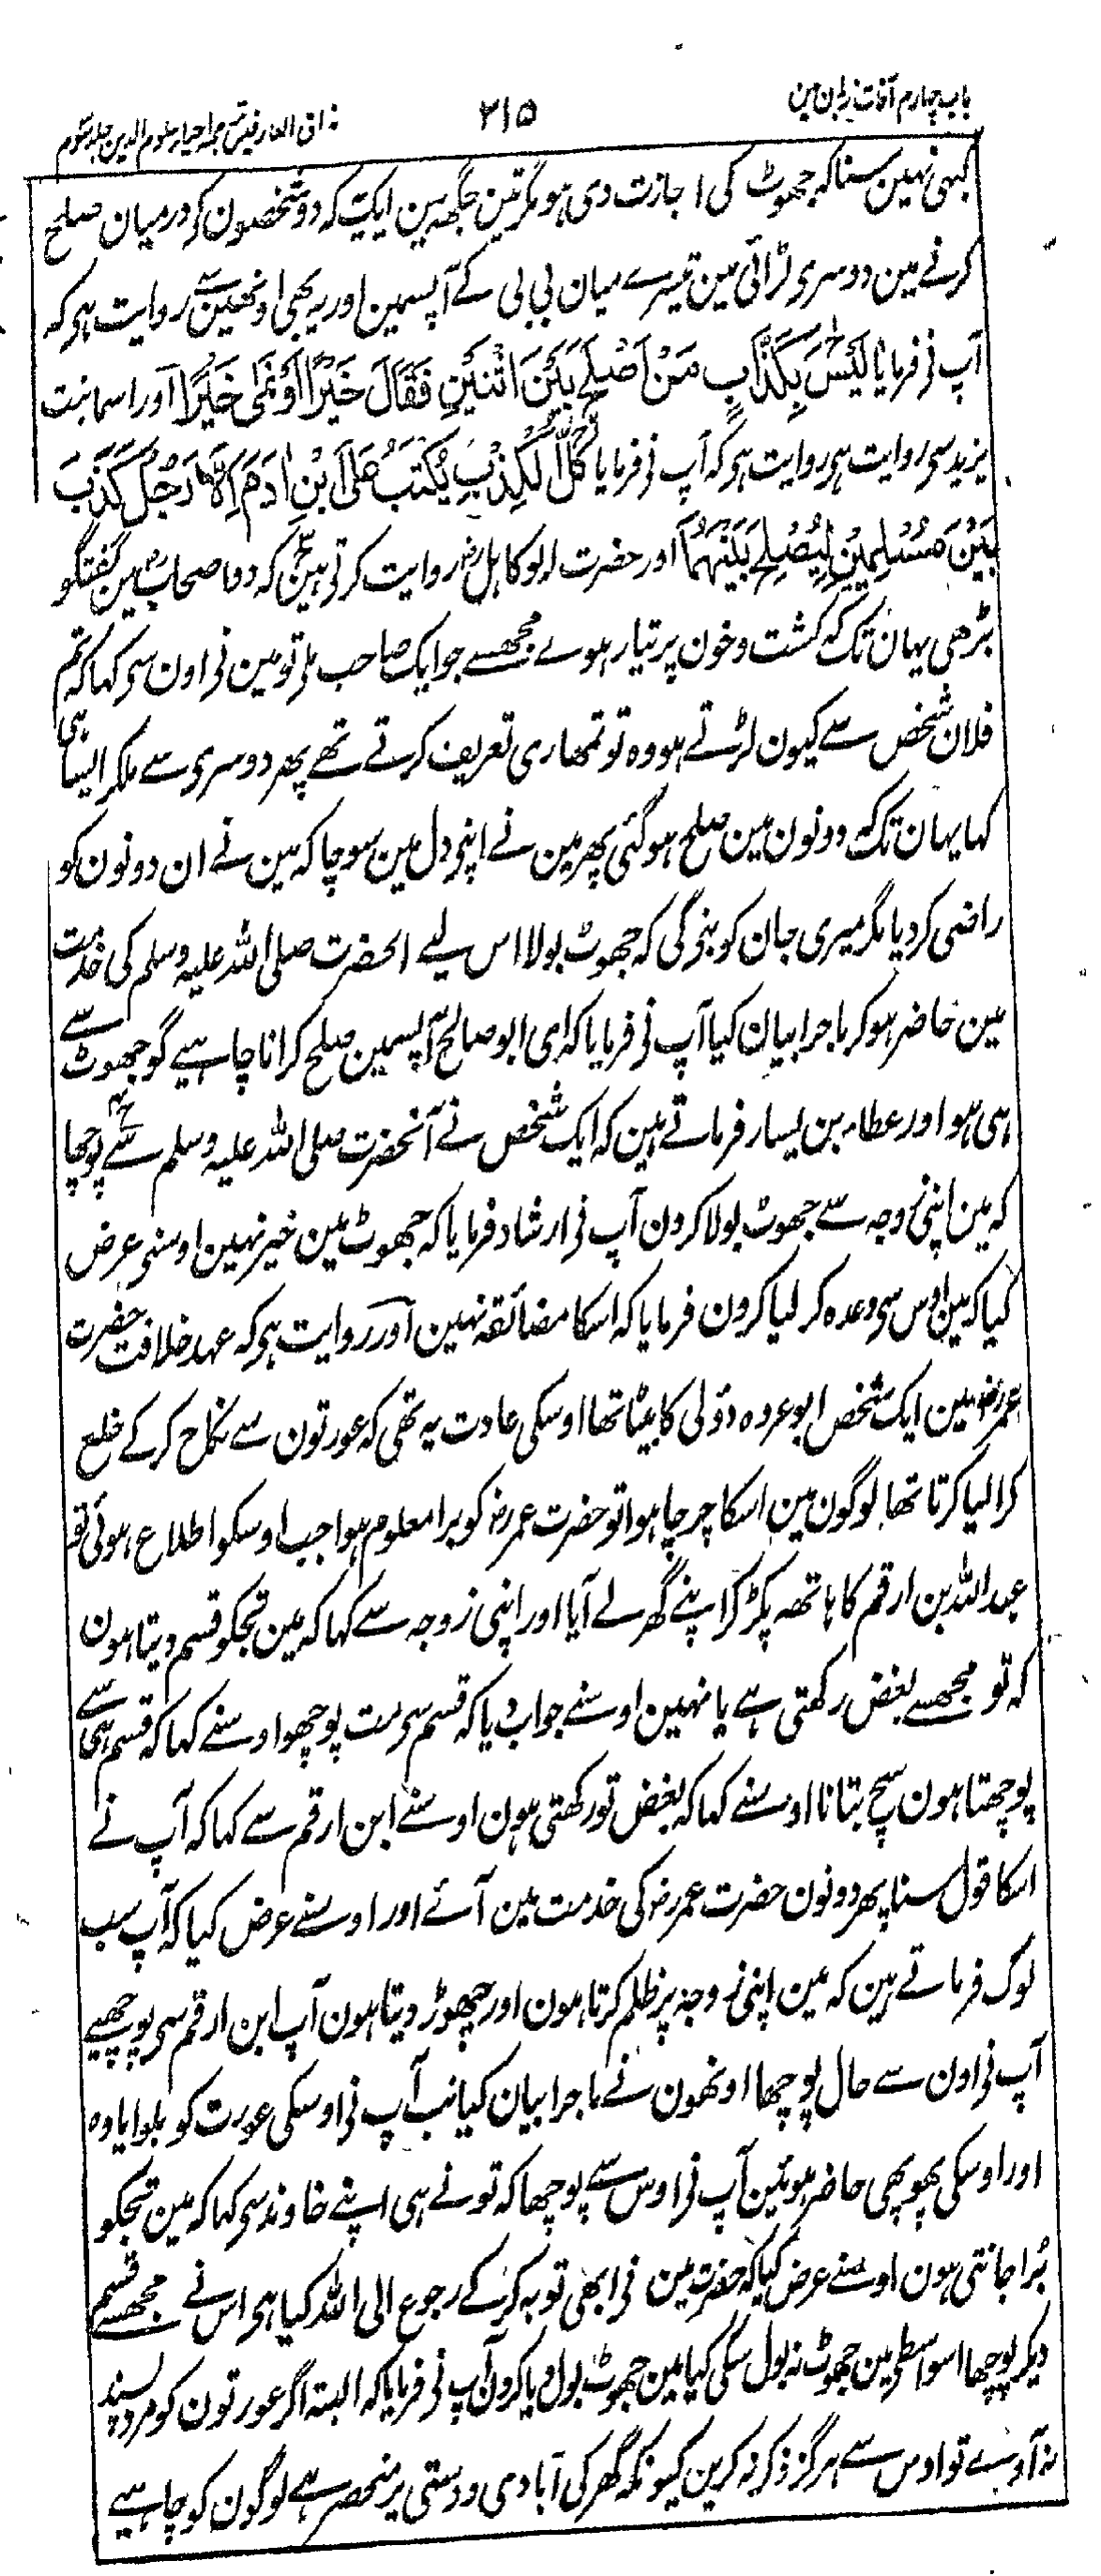 باب چہارم آفات زبان مین ۲۱۵ مذاق العارفین ترجمہ احیاء علوم الدین جلد سوم
کبھی نہین سنا کہ جھوٹ کی اجازت دی ہو مگر تین جگھہ مین ایک یہ کہ دو شخصون کے درمیان صلح
کرنے مین دوسری لڑائی مین تیسرے میان بی بی کے آپسمین اور یہ بھی اونھین سے روایت ہی کہ
آپ نے فرمایا لَیْسَ بِکَذَّابٍ مَنْ اَصْلَحَ بَیْنَ اثْنَیْنِ فَقَالَ خَیْرًا اَوْ نَمٰی خَیْرًا اور اسما بنت
یزید سی روایت ہی روایت ہی کہ آپ نے فرمایا کُلُّ الْکِذْبِ یُکْتَبُ عَلَی ابْنِ اٰدَمَ اِلَّا رَجُلٌ کَذَبَ
بَیْنَ مُسْلِمَیْنِ لِیُصْلِحَ بَیْنَهُمَا اور حضرت ابو کاہل رضہ روایت کرتے ہین کہ دو صحابہ مین گفتگو
بڑھی یہان تک کہ کشت و خون پر تیار ہوے مجھسے جو ایک صاحب ملے تو مین نے اون سی کہا کہ تم
فلان شخص سے کیون لڑتے ہو وہ تو تمھاری تعریف کرتے تھے پھر دوسری سے ملکر ایسا ہی
کہا یہان تک کہ دونون مین صلح ہو گئی پھر مین نے اپنے دل مین سوچا کہ مین نے ان دونون کو
راضی کر دیا مگر میری جان کو بنے گی کہ جھوٹ بولا اس لیے آنحضرت صلی اللہ علیہ وسلم کی خدمت
مین حاضر ہو کر ماجرا بیان کیا آپ نے فرمایا کہ ای ابو صالح آپسمین صلح کرانا چاہیے گو جھوٹ سے
ہی ہو اور عطاء بن یسار فرماتے ہین کہ ایک شخص نے آنحضرت صلی اللہ علیہ وسلم سے پوچھا
کہ مین اپنی زوجہ سے جھوٹ بولا کرون آپ نے ارشاد فرمایا کہ جھوٹ مین خیر نہین اوسنے عرض
کیا کہ مین اوس سی وعدہ کر لیا کرون فرمایا کہ اسکا مضائقہ نہین اور روایت ہی کہ عہد خلافت حضرت
عمر رضہ مین ایک شخص ابو عروہ دؤلی کا بیٹا تھا اوسکی عادت یہ تھی کہ عورتون سے نکاح کر کے خلع
کرا لیا کرتا تھا لوگون مین اسکا چرچا ہوا تو حضرت عمر رضہ کو برا معلوم ہوا جب اوسکو اطلاع ہوئی تو
عبد اللہ بن ارقم کا ہاتھ پکڑ کر اپنے گھر لے آیا اور اپنی زوجہ سے کہا کہ مین تجکو قسم دیتا ہون
کہ تو مجھسے بغض رکھتی ہے یا نہین اوسنے جواب دیا کہ قسم سی مت پوچھو اوسنے کہا کہ قسم ہی سے
پوچھتا ہون سچ بتانا اوسنے کہا کہ بغض تو رکھتی ہون اوسنے ابن ارقم سے کہا کہ آپ نے
اسکا قول سنا پھر دونون حضرت عمر رضہ کی خدمت مین آئے اور اوسنے عرض کیا کہ آپ سب
لوگ فرماتے ہین کہ مین اپنی زوجہ پر ظلم کرتا ہون اور چھوڑ دیتا ہون آپ ابن ارقم سی پوچھیے
آپ نے اون سے حال پوچھا اونھون نے ماجرا بیان کیا تب آپ نے اوسکی عورت کو بلوایا وہ
اور اوسکی پھوپھی حاضر ہوئین آپ نے اوس سے پوچھا کہ تو نے ہی اپنے خاوند سی کہا کہ مین تجکو
بُرا جانتی ہون اوسنے عرض کیا کہ حضرت مین نے ابھی توبہ کر کے رجوع الی اللہ کیا ہی اس نے مجھسے قسم
دیکر پوچھا اسواسطے مین جھوٹ نہ بول سکی کیا مین جھوٹ بول دیا کرون آپ نے فرمایا کہ البتہ اگر عورتون کو مرد پسند
نہ آوے تو اوس سے ہرگز ذکر نہ کرین کیونکہ گھر کی آبادی دوستی پر منحصر ہے لوگون کو چاہیے